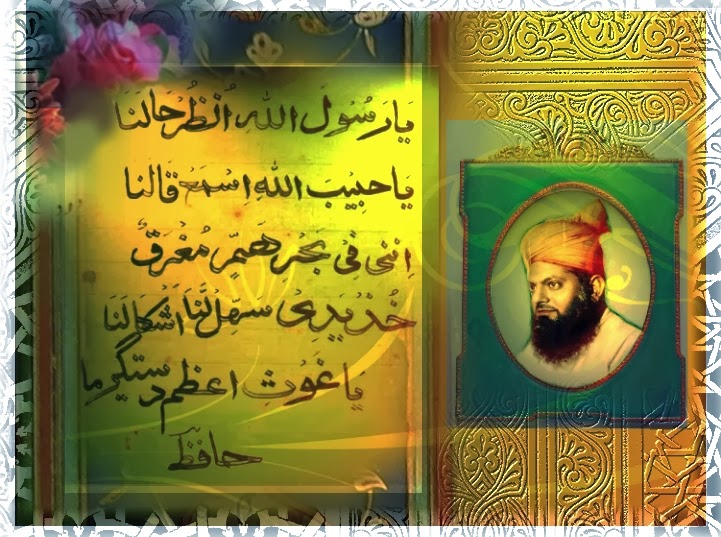 يَا رَسُوْلَ اللہ اُنْظُرْ حَالَنَا
يَا حَبِيْبَ اللهِ اِسْمَعْ قَالَنَا
اِنَّنِي فِيْ بَحْرِ هَمٍّ مُغْرَقٌ
خُذْ يَدِيْ سَهِّلْ لَّنَا اَشْكَالَنَا
يا غَوْثِ اعظم دستگیر ما
حافظ